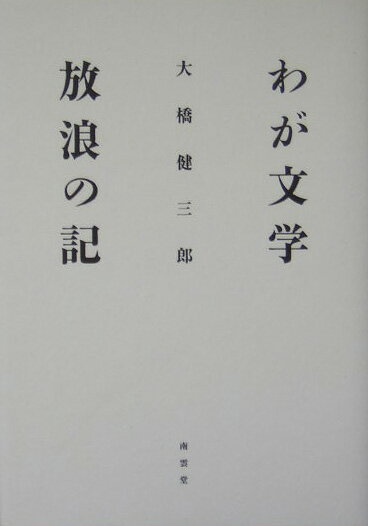 わが文学
放浪の記
大橋健三郎
南雲堂